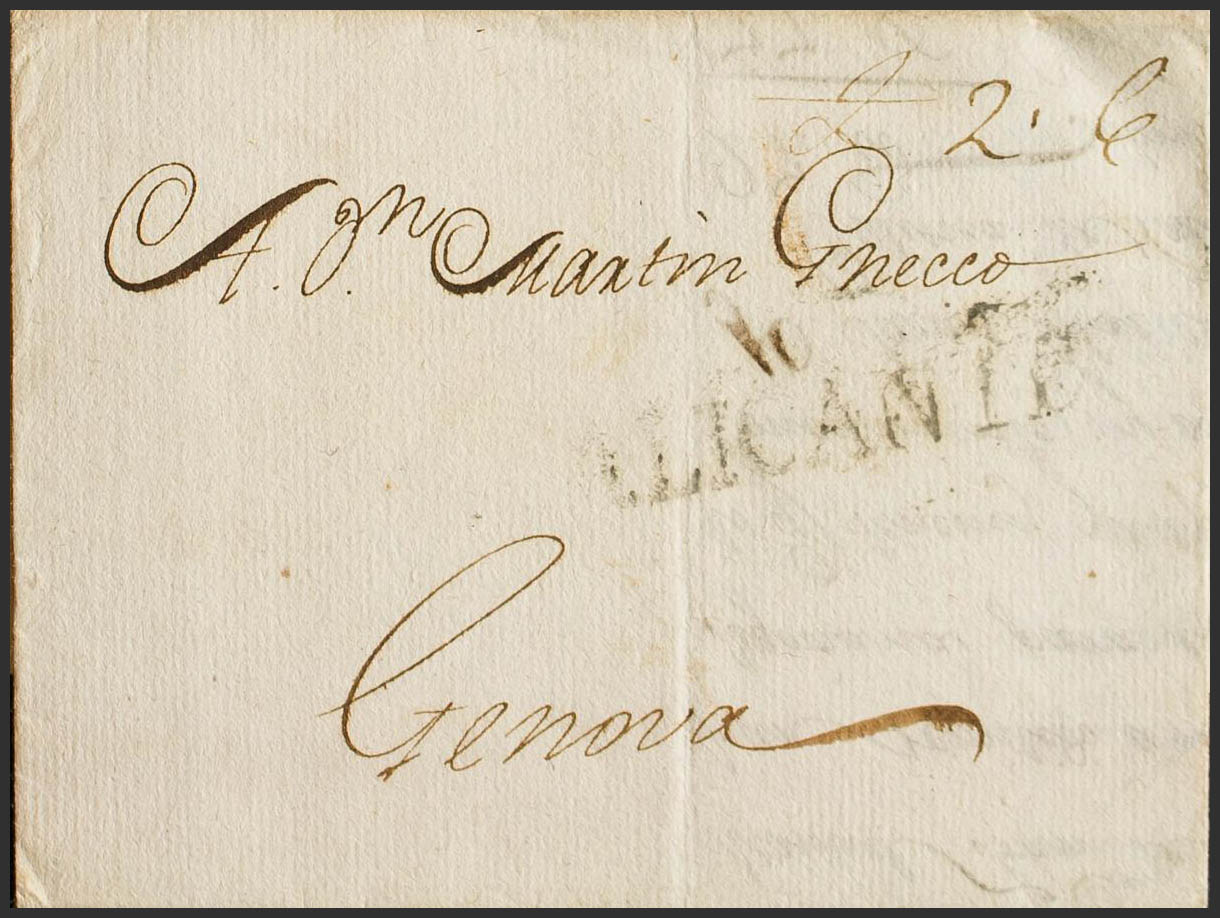 2. 6
A. Jn. Martin Gnecco
10
ALICANTE
Genova